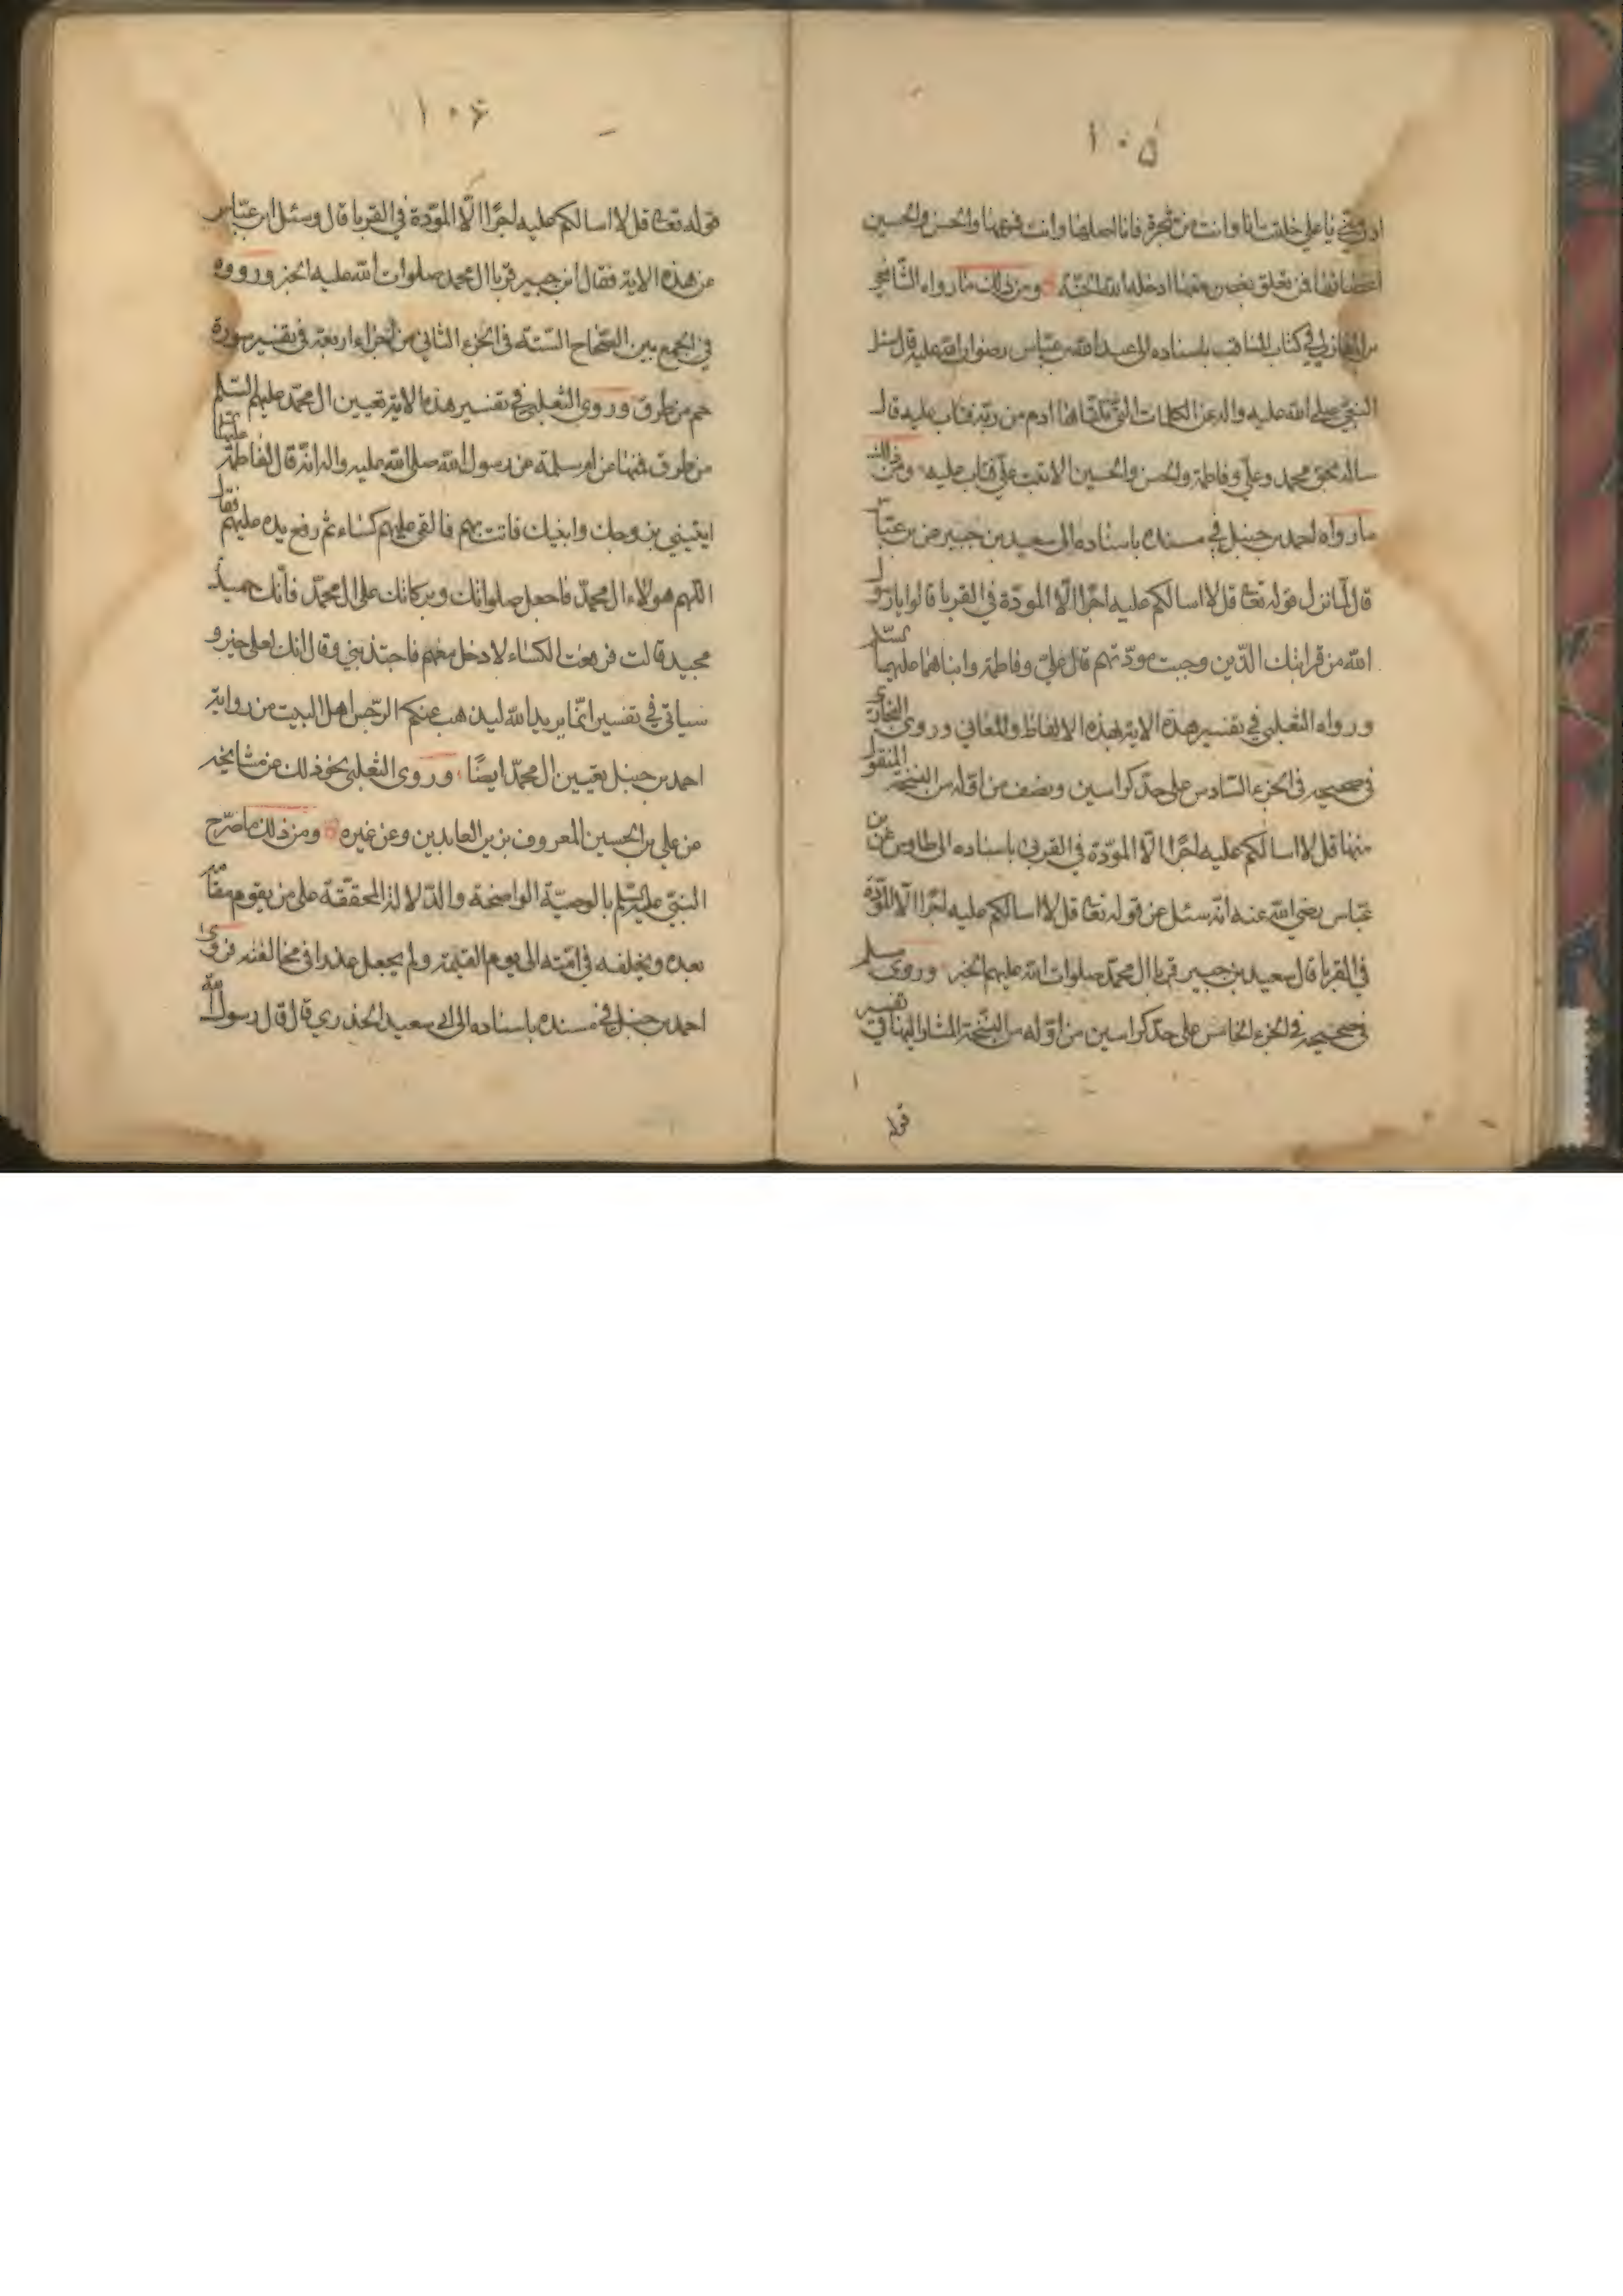 ١٠۵
ادن منّي يا علي خلقت انا وانت من شجرة فانا اصلها وانت فرعها والحسن والحسين
اغصانها فمن تعلق بغصن منها ادخله الله الجنّة ومن ذلك ما رواه الشّافعي
بن المغازلي في كتاب المناقب باسناده الى عبد الله بن عبّاس رضوان الله عليه قال سئل
النبيّ صلى الله عليه واله عن الكلمات التي تلقّاها ادم من ربّه فتاب عليه قال
ساله بحق محمد وعليّ وفاطمة والحسن والحسين الا تبت عليّ فتاب عليه ومن ذلك
ما رواه احمد بن حنبل في مسنده باسناده الى سعيد بن جبير عن بن عبّاس
قال لمّا نزل قوله تعا قل لا اسالكم عليه اجرًا الّا المودّة في القربا قالوا يا رسول
الله من قرابتك الّذين وجبت مودّتهم قال عليّ وفاطمة وابناهما عليهما السّلم
ورواه الثعلبي في تفسير هذه الاية بهذه الالفاظ والمعاني وروى البخاري
في صحيحه في الجزء السّادس على حدّ كراسين ونصف من اوّله من النسخة المنقول
منها قل لا اسالكم عليه اجرًا الّا المودّة في القربى باسناده الى طاوس عن بن
عبّاس رضي الله عنه انّه سئل عن قوله تعا قل لا اسالكم عليه اجرًا الّا المودّة
في القربا قال سعيد بن جبير قربا ال محمّد صلوات الله عليهم الخبر وروى مسلم
في صحيحه في الجزء الخامس على حدّ كراسين من اوّله من النّسخة المشار اليها في تفسير
قوله
١٠۶
قوله تعا قل لا اسالكم عليه اجرًا الّا المودّة في القربا قال وسئل ابن عبّاس
عن هذه الاية فقال ابن جبير قربا ال محمد صلوات الله عليه الخبر ورووه
في الجمع بين الصّحاح السّتة في الجزء الثاني من اجزاء اربعة في تفسير سورة
حم من طرق وروى الثعلبي في تفسير هذه الاية تعيين ال محمّد عليهم السّلم
من طرق فمنها عن ام سلمة عن رسول الله صلى الله عليه واله انّه قال لفاطمة عليها
ايتيني بزوجك وابنيك فاتت بهم فالقى عليهم كساء ثم رفع يده عليهم فقال
اللهم هولاء ال محمّد فاجعل صلواتك وبركاتك على ال محمّد فانّك حميد
مجيد قالت فرفعت الكساء لادخل معهم فاجتذبني وقال انك لعلى خير و
سياتي في تفسير انّما يريد الله ليذهب عنكم الرّجس اهل البيت من رواية
احمد بن حنبل تعيين ال محمّد ايضًا وروى الثعلبي نحو ذلك عن مشايخه
عن علي بن الحسين المعروف بزين العابدين وعن غيره ومن ذلك ما صرّح
النبيّ عليه السّلم بالوصيّة الواضحة والدّلالة المحقّقة على من يقوم مقامه
بعده ويخلفه في امّته الى يوم القيمة ولم يجعل عذرا في مخالفته فروى
احمد بن حنبل في مسنده باسناده الى ابي سعيد الخدري قال قال رسول الله